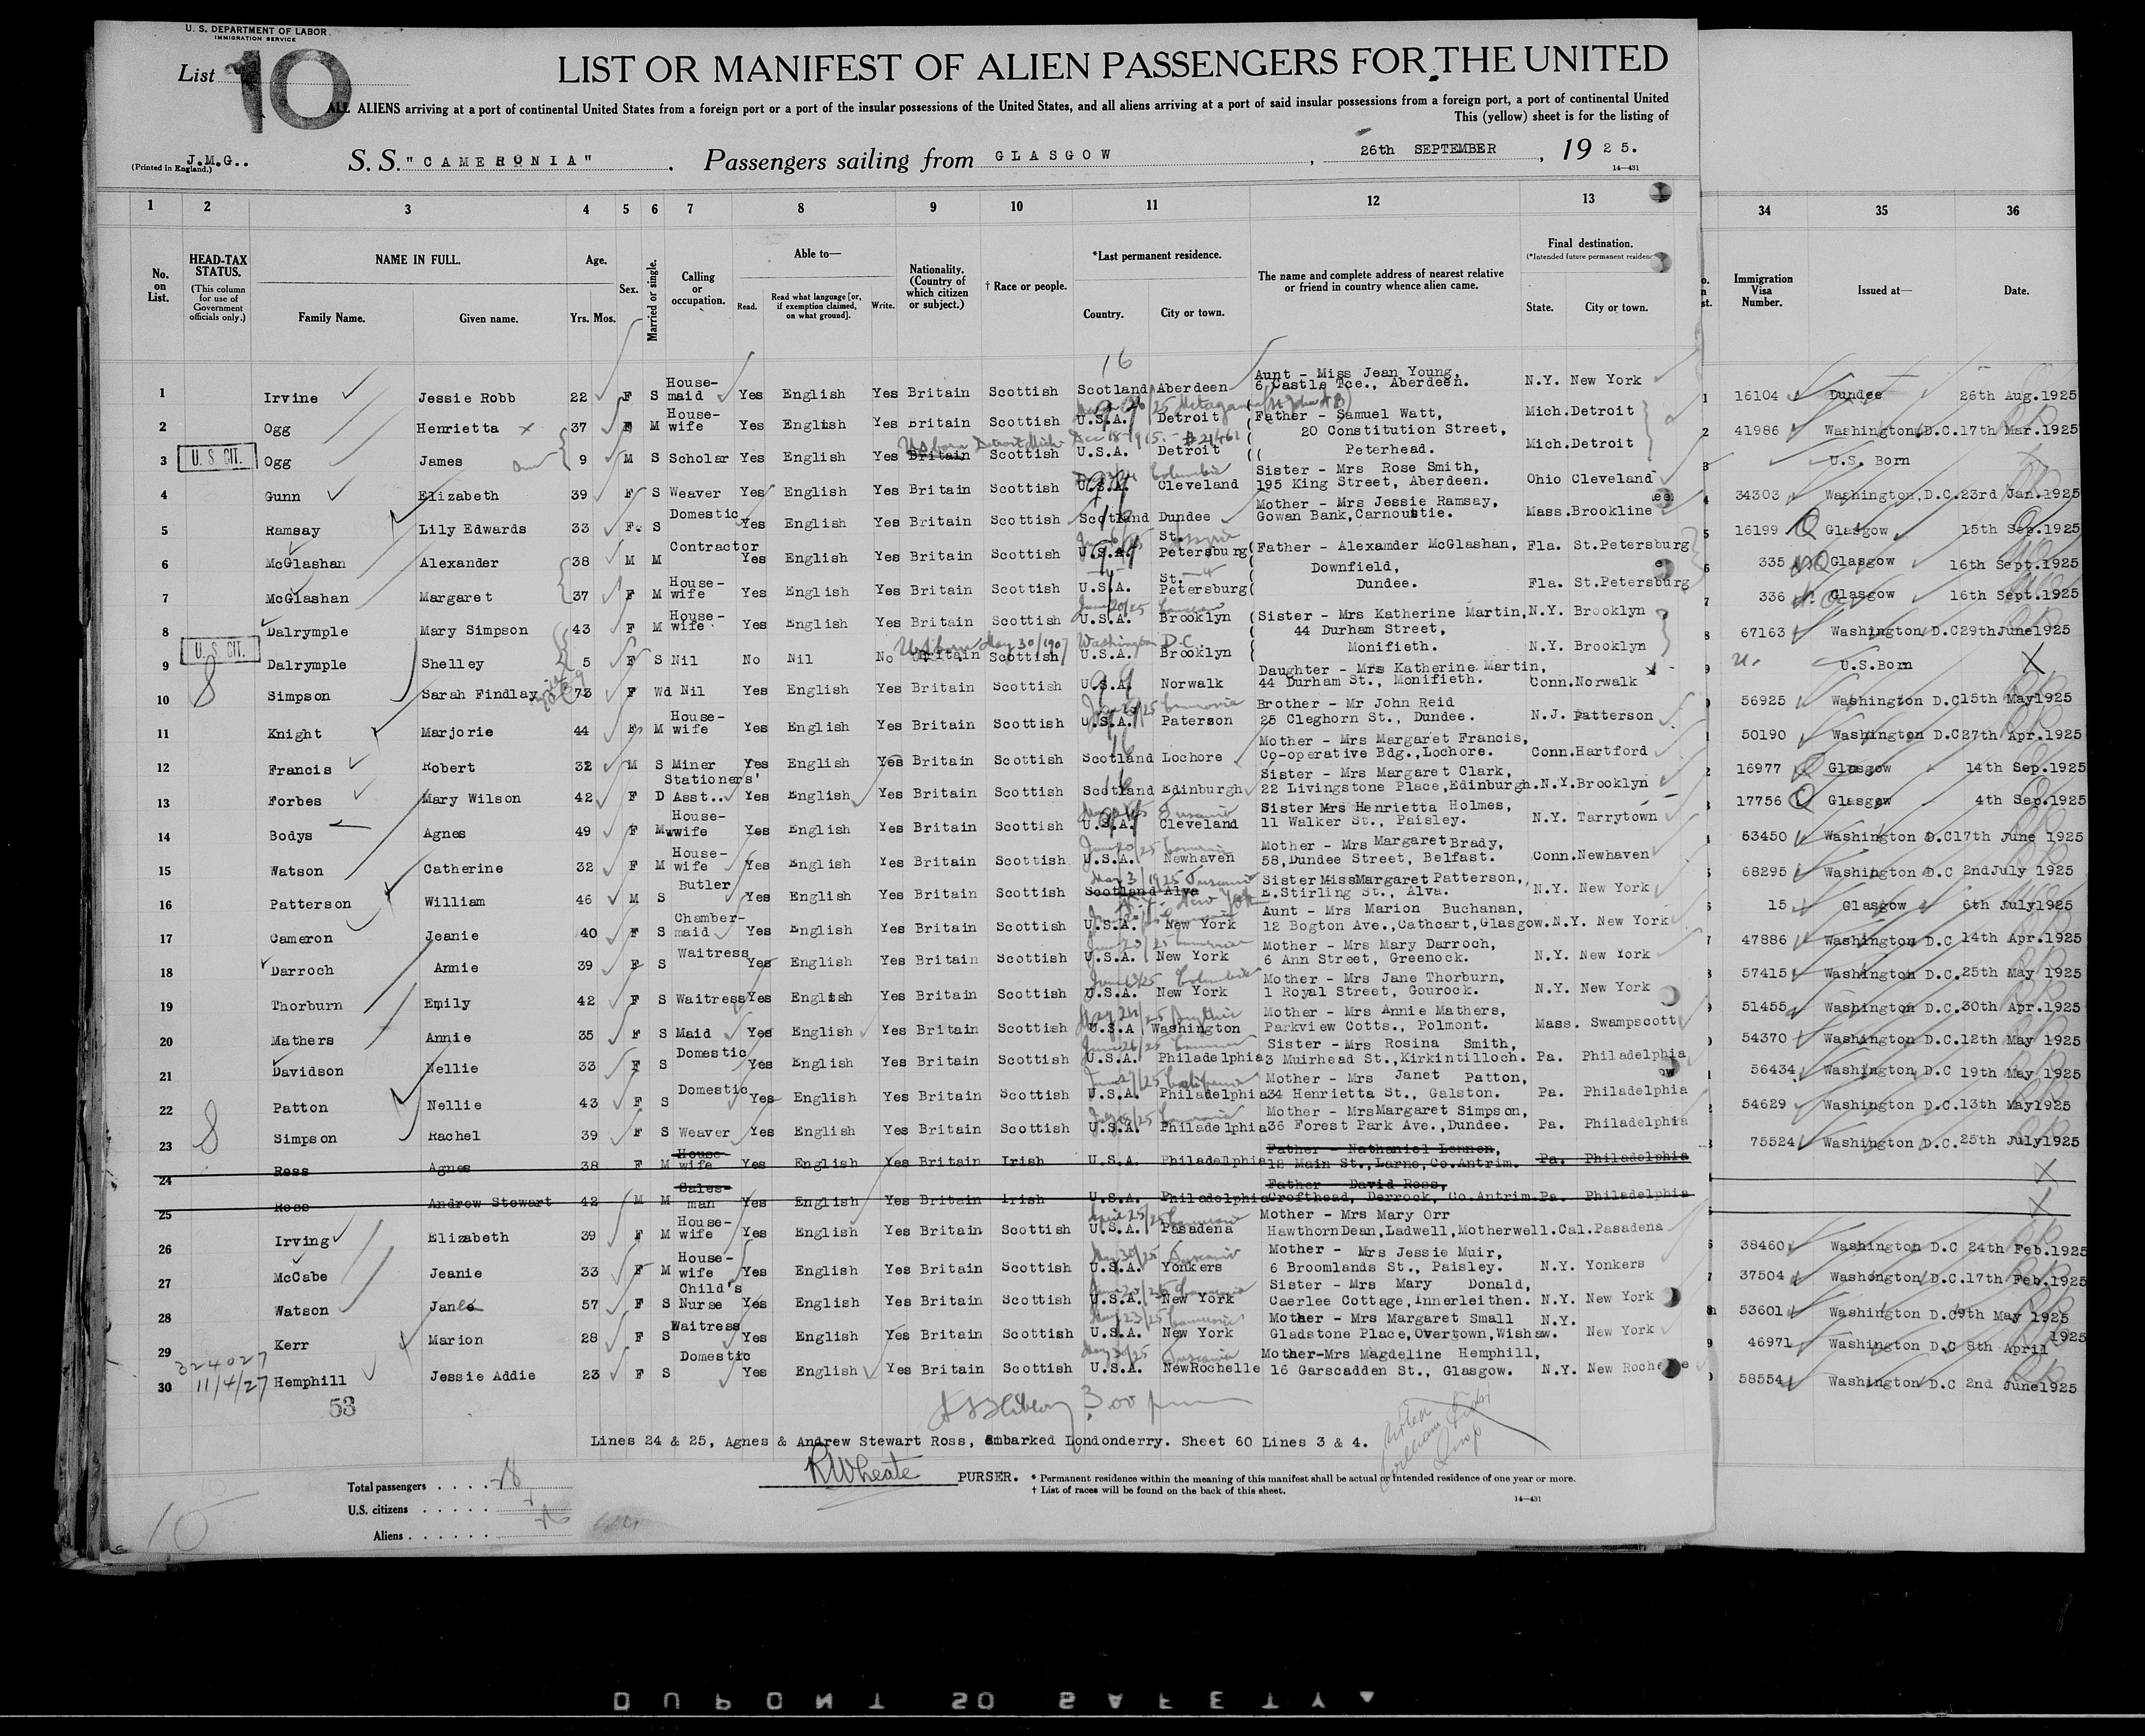 U. S. DEPARTMENT OF LABOR
IMMIGRATION SERVICE
List 10
LIST OR MANIFEST OF ALIEN PASSENGERS FOR THE UNITED
ALL ALIENS arriving at a port of continental United States from a foreign port or a port of the insular possessions of the United States, and all aliens arriving at a port of said insular possessions from a foreign port, a port of continental United
This (yellow) sheet is for the listing of
J.M.G..
(Printed in England.)
S. S. "CAMERONIA" . Passengers sailing from GLASGOW , 26th SEPTEMBER , 19 25.
14—431
1 2 3 4 5 6 7 8 9 10 11 12 13 34 35 36
No. on List.
HEAD-TAX STATUS.
(This column for use of Government officials only.)
NAME IN FULL.
Family Name. Given name.
Age.
Yrs. Mos.
Sex.
Married or single.
Calling or occupation.
Able to—
Read. Read what language [or, if exemption claimed, on what ground]. Write.
Nationality. (Country of which citizen or subject.)
† Race or people.
*Last permanent residence.
Country. City or town.
The name and complete address of nearest relative or friend in country whence alien came.
Final destination.
(*Intended future permanent residence
State. City or town.
Immigration Visa Number.
Issued at—
Date.
1 Irvine Jessie Robb 22 F S House-maid Yes English Yes Britain Scottish Scotland Aberdeen Aunt - Miss Jean Young, 6 Castle Tce., Aberdeen. N.Y. New York 16104 Dundee 26th Aug.1925
2 Ogg Henrietta 37 F M House-wife Yes English Yes Britain Scottish U.S.A. Detroit Father - Samuel Watt, 20 Constitution Street, Mich.Detroit 41986 Washington,D.C.17th Mar.1925
3 U. S. CIT. Ogg James 9 M S Scholar Yes English Yes Britain Scottish U.S.A. Detroit Peterhead. Mich.Detroit U.S. Born
US born Detroit Mich Dec 18-1915. - #21461
4 Gunn Elizabeth 39 F S Weaver Yes English Yes Britain Scottish U.S.A. Cleveland Sister - Mrs Rose Smith, 195 King Street, Aberdeen. Ohio Cleveland 34303 Washington,D.C.23rd Jan.1925
5 Ramsay Lily Edwards 33 F. S Domestic Yes English Yes Britain Scottish Scotland Dundee Mother - Mrs Jessie Ramsay, Gowan Bank,Carnoustie. Mass.Brookline 16199 Glasgow 15th Sep.1925
6 McGlashan Alexander 38 M M Contractor Yes English Yes Britain Scottish U.S.A. St. Petersburg Father - Alexamder McGlashan, Downfield, Fla. St.Petersburg 335 Glasgow 16th Sept.1925
7 McGlashan Margaret 37 F M House-wife Yes English Yes Britain Scottish U.S.A. St. Petersburg Dundee. Fla. St.Petersburg 336 Glasgow 16th Sept.1925
8 Dalrymple Mary Simpson 43 F M House-wife Yes English Yes Britain Scottish U.S.A. Brooklyn Sister - Mrs Katherine Martin, 44 Durham Street, N.Y. Brooklyn 67163 Washington D.C29thJune1925
9 U. S. CIT. Dalrymple Shelley 5 F S Nil No Nil No Britain Scottish U.S.A. Brooklyn Monifieth. N.Y. Brooklyn U.S.Born
10 Simpson Sarah Findlay 73 F Wd Nil Yes English Yes Britain Scottish U.S.A. Norwalk Daughter - Mrs Katherine Martin, 44 Durham St., Monifieth. Conn.Norwalk 56925 Washington D.C15th May1925
11 Knight Marjorie 44 F M House-wife Yes English Yes Britain Scottish U.S.A. Paterson Brother - Mr John Reid 25 Cleghorn St., Dundee. N.J. Patterson 50190 Washington D.C27th Apr.1925
12 Francis Robert 32 M S Miner Yes English Yes Britain Scottish Scotland Lochore Mother - Mrs Margaret Francis, Co-operative Bdg.,Lochore. Conn.Hartford 16977 Glasgow 14th Sep.1925
13 Forbes Mary Wilson 42 F D Stationers' Asst.. Yes English Yes Britain Scottish Scotland Edinburgh Sister - Mrs Margaret Clark, 22 Livingstone Place,Edinburgh. N.Y.Brooklyn 17756 Glasgow 4th Sep.1925
14 Bodys Agnes 49 F M House-wife Yes English Yes Britain Scottish U.S.A. Cleveland Sister Mrs Henrietta Holmes, 11 Walker St., Paisley. N.Y. Tarrytown 63450 Washington D.C17th June 1925
15 Watson Catherine 32 F M House-wife Yes English Yes Britain Scottish U.S.A. Newhaven Mother - Mrs Margaret Brady, 58,Dundee Street, Belfast. Conn.Newhaven 68295 Washington D.C 2ndJuly 1925
16 Patterson William 46 M S Butler Yes English Yes Britain Scottish Scotland Alva Sister MissMargaret Patterson, E.Stirling St., Alva. N.Y. New York 15 Glasgow 6th July1925
17 Cameron Jeanie 40 F S Chamber-maid Yes English Yes Britain Scottish U.S.A. New York Aunt - Mrs Marion Buchanan, 12 Bogton Ave.,Cathcart,Glasgow. N.Y. New York 47886 Washington D.C 14th Apr.1925
18 Darroch Annie 39 F S Waitress Yes English Yes Britain Scottish U.S.A. New York Mother - Mrs Mary Darroch, 6 Ann Street, Greenock. N.Y. New York 57415 Washington D.C.25th May 1925
19 Thorburn Emily 42 F S Waitress Yes English Yes Britain Scottish U.S.A. New York Mother - Mrs Jane Thorburn, 1 Royal Street, Gourock. N.Y. New York 51455 Washington D.C.30th Apr.1925
20 Mathers Annie 35 F S Maid Yes English Yes Britain Scottish U.S.A Washington Mother - Mrs Annie Mathers, Parkview Cotts., Polmont. Mass. Swampscott 54370 Washington D.C.12th May 1925
21 Davidson Nellie 33 F S Domestic Yes English Yes Britain Scottish U.S.A. Philadelphia Sister - Mrs Rosina Smith, 3 Muirhead St.,Kirkintilloch. Pa. Philadelphia 56434 Washington D.C 19th May 1925
22 Patton Nellie 43 F S Domestic Yes English Yes Britain Scottish U.S.A. Philadelphia Mother - Mrs Janet Patton, 34 Henrietta St., Galston. Pa. Philadelphia 54629 Washington D.C.13th May1925
23 Simpson Rachel 39 F S Weaver Yes English Yes Britain Scottish U.S.A. Philadelphia Mother - MrsMargaret Simpson, 36 Forest Park Ave.,Dundee. Pa. Philadelphia 75524 Washington D.C.25th July1925
24 Ross Agnes 38 F M House-wife Yes English Yes Britain Irish U.S.A. Philadelphia Father - Nathaniel Lennon, 18 Main St.,Larne,Co.Antrim. Pa. Philadelphia
25 Ross Andrew Stewart 42 M M Sales-man Yes English Yes Britain Irish U.S.A. Philadelphia Father - David Ross, Crofthead, Derrock, Co.Antrim. Pa. Philadelphia
26 Irving Elizabeth 39 F M House-wife Yes English Yes Britain Scottish U.S.A. Pasadena Mother - Mrs Mary Orr HawthornDean,Ladwell,Motherwell. Cal.Pasadena 38460 Washington D.C 24th Feb.1925
27 McCabe Jeanie 33 F M House-wife Yes English Yes Britain Scottish U.S.A. Yonkers Mother - Mrs Jessie Muir, 6 Broomlands St., Paisley. N.Y. Yonkers 37504 Washington D.C.17th Feb.1925
28 Watson Jane 57 F S Child's Nurse Yes English Yes Britain Scottish U.S.A. New York Sister - Mrs Mary Donald, Caerlee Cottage,Innerleithen. N.Y. New York 53601 Washington D.C9th May 1925
29 Kerr Marion 28 F S Waitress Yes English Yes Britain Scottish U.S.A. New York Mother - Mrs Margaret Small Gladstone Place,Overtown,Wishaw. N.Y. New York 46971 Washington D.C 8th April 1925
30 Hemphill Jessie Addie 23 F S Domestic Yes English Yes Britain Scottish U.S.A. NewRochelle Mother-Mrs Magdeline Hemphill, 16 Garscadden St., Glasgow. N.Y. New Roche e 58554 Washington D.C 2nd June1925
324027
11/4/27
53
3.00 pm
Lines 24 & 25, Agnes & Andrew Stewart Ross, embarked Londonderry. Sheet 60 Lines 3 & 4.
PURSER.
* Permanent residence within the meaning of this manifest shall be actual or intended residence of one year or more.
† List of races will be found on the back of this sheet.
14—431
Total passengers
U.S. citizens
Aliens
10
DUPONT SO SAFETY